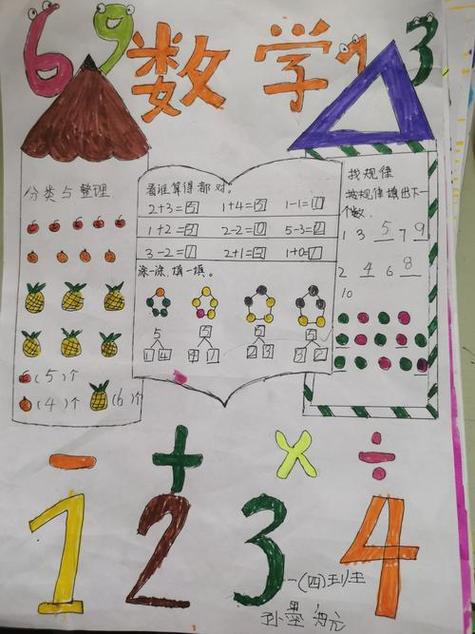 6 9 数学 3
分类与整理
(5)个
(4)个 (6)个
看谁算得都对。
2+3=5 1+4=5 1-1=0
1+2=3 2-2=0 5-3=2
3-2=1 2+1=3 1+0=1
涂一涂,填一填。
5 5 5 5
1 4 4 1 2 3 3 2
找规律
按规律填出下一
个数。
1 3 5 7 9
2 4 6 8
10
- + × ÷
1 2 3 4
一(四)班
孙墨